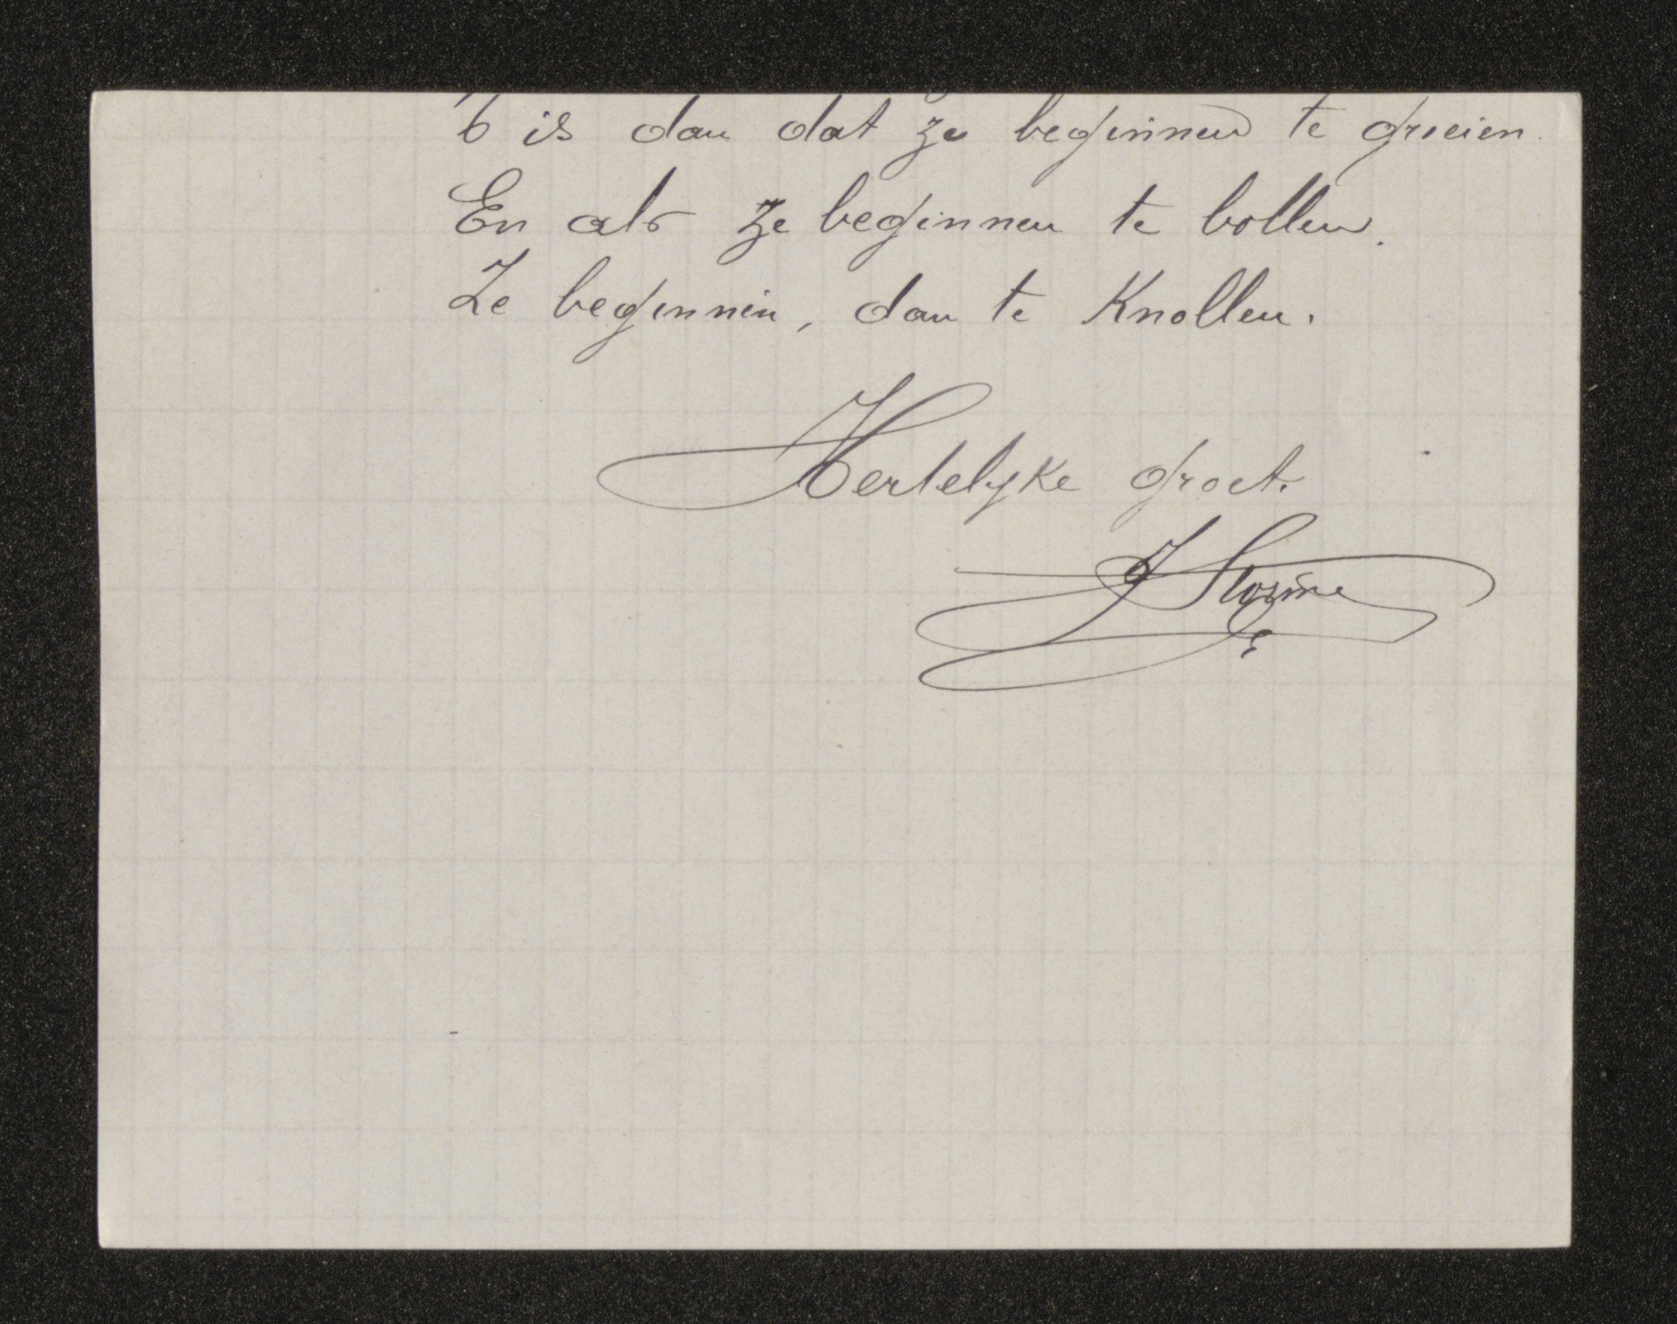 't is dan dat ze beginnen te groeien.
En als ze beginnen te bollen.
Ze beginnen, dan te Knollen.
Hertelyke groet.
J Storme